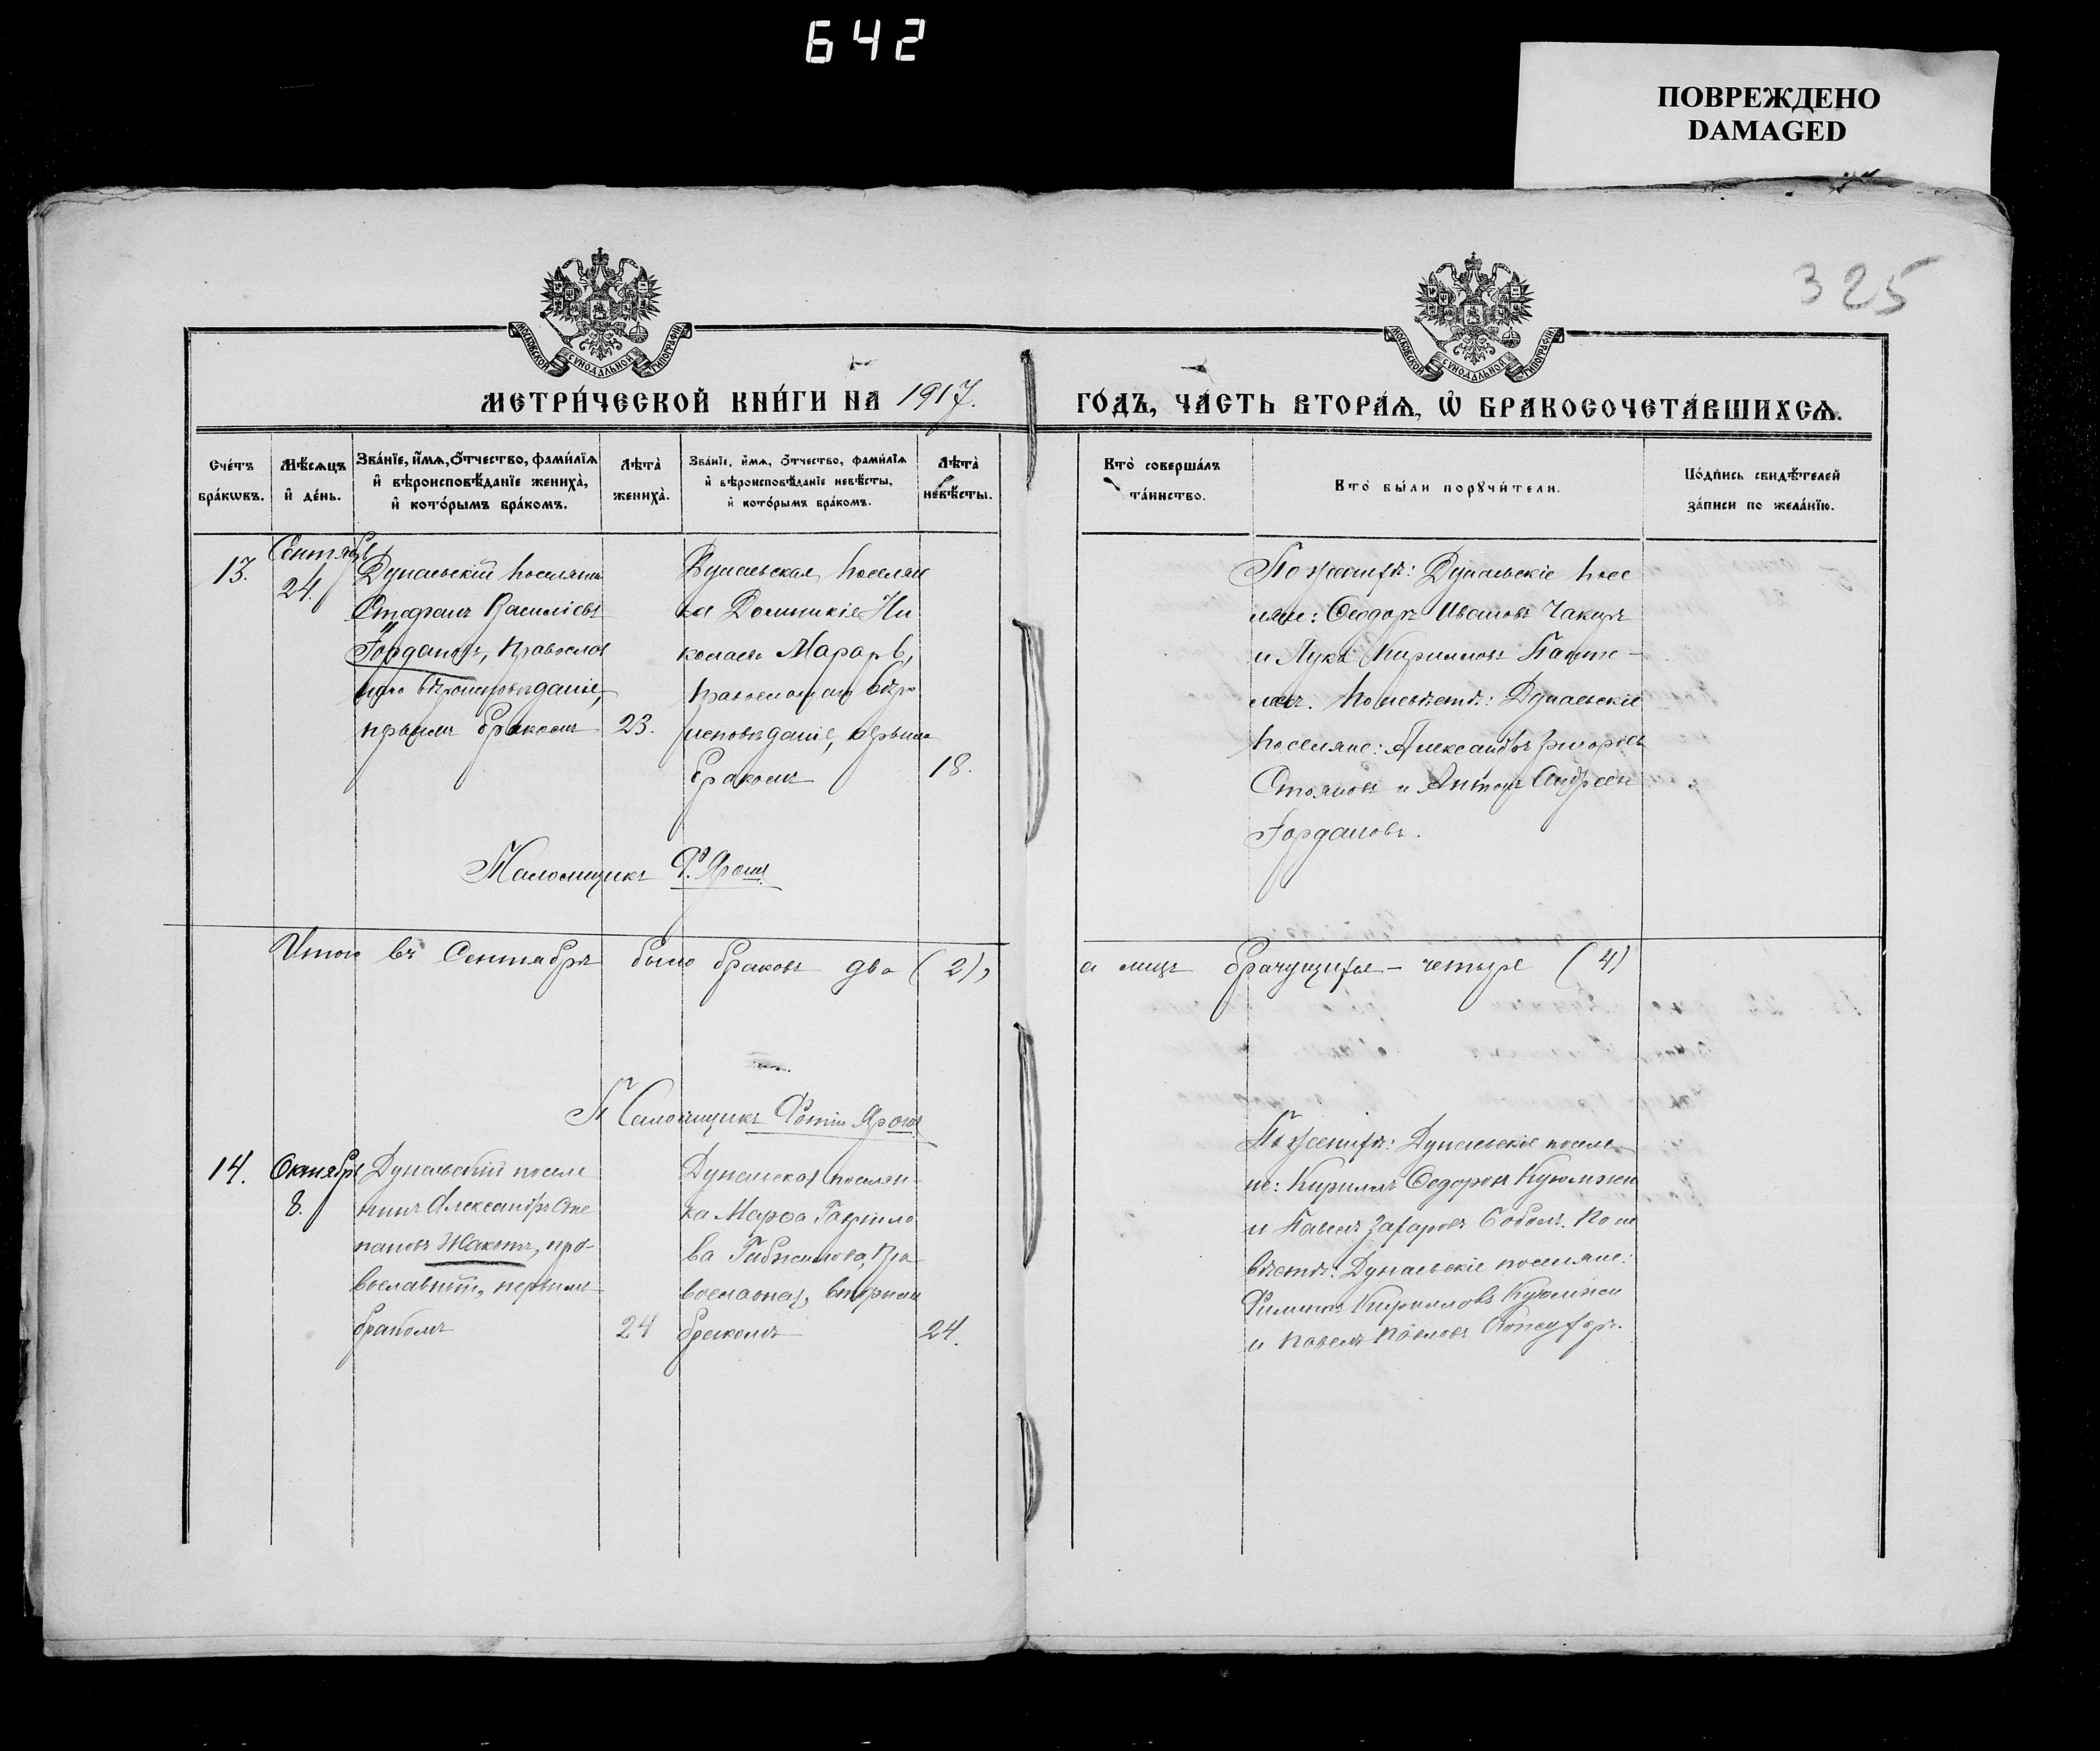 642
ПОВРЕЖДЕНО
DAMAGED
325
МОСКОВСКОЙ СѴНОДАЛЬНОЙ ТИПОГРАФІИ
МОСКОВСКОЙ СѴНОДАЛЬНОЙ ТИПОГРАФІИ
МЕТРИ́ЧЕСКОЙ КНИ́ГИ НА 1917.
ГО́ДЪ, ЧА́СТЬ ВТОРА́Ѧ, Ѽ БРАКОСОЧЕТА́ВШИХСѦ.
Сче́тъ
бра́кѡвъ.
Мѣ́сѧцъ
и҆ де́нь.
Зва́нїе, и҆́мѧ, ѻ҆́тчество, фами́лїѧ
и҆ вѣроисповѣ́данїе жениха̀,
и҆ кото́рымъ бра́комъ.
Лѣта̀
жениха̀.
Зва́нїе, и҆́мѧ, ѻ҆́тчество, фами́лїѧ
и҆ вѣроисповѣ́данїе невѣ́сты,
и҆ кото́рымъ бра́комъ.
Лѣта̀
невѣ́сты.
Кто̀ соверша́лъ
та́инство.
Кто̀ бы́ли порꙋчи́тели.
По́дпись свидѣ́телей
за́писи по жела́нїю.
13.
Сентябрь
24.
Дунаевскій поселянинъ
Стефанъ Василіевъ
Іордановъ, православ
наго вѣроисповѣданіе,
первымъ бракомъ
23.
Дунаевская поселян
ка Домникіе Ни
колаевъ Мараръ,
православнаго вѣро
исповѣданіе, первымъ
бракомъ
18.
По женихѣ: Дунаевскіе посе
ляне: Ѳеодоръ Ивановъ Чакиръ
и Лука Кирилловъ Панте-
леевъ. По невѣстѣ: Дунаевскіе
поселяне: Александръ Григоріевъ
Стояновъ и Антонъ Андреевъ
Іордановъ.
Псаломщикъ Ф. Ярош
Итого въ Сентябрѣ было браковъ два (2),
а лицъ брачущихся – четыре (4)
Псаломщикъ Фотій Ярош
14.
Октябрь
8.
Дунаевскій поселя
нинъ Александръ Сте
пановъ Жаконъ, пра-
вославный, первымъ
бракомъ
24
Дунаевская поселян-
ка Марѳа Гаврило
ва Пра
вославная, вторымъ
бракомъ
24.
По женихѣ: Дунаевскіе поселя-
не: Кириллъ Ѳедоровъ Куюмжи
и Павелъ Захаровъ Соболь. По не
вѣстѣ: Дунаевскіе поселяне:
Филиппъ Кирилловъ Куюмжи
и Павелъ Павловъ